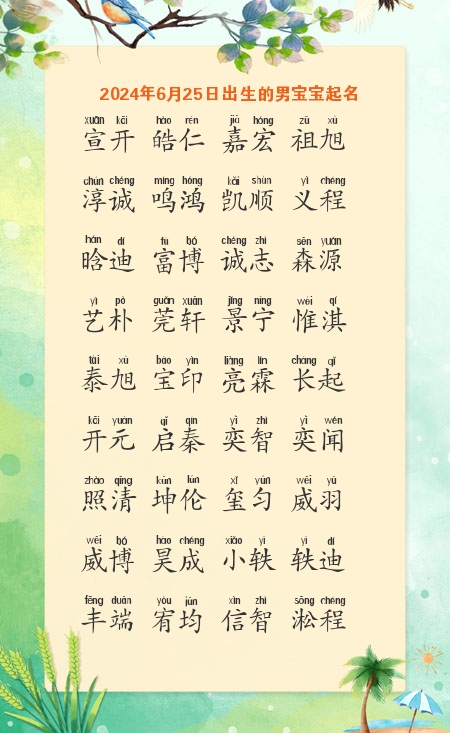 2024年6月25日出生的男宝宝起名
xuān kāi hào rén jiā hóng zǔ xù
宣开 皓仁 嘉宏 祖旭
chún chéng míng hóng kǎi shùn yì chéng
淳诚 鸣鸿 凯顺 义程
hán dí fù bó chéng zhì sēn yuán
晗迪 富博 诚志 森源
yì pò guǎn xuān jǐng níng wéi qí
艺朴 莞轩 景宁 惟淇
tài xù bǎo yìn liàng lín cháng qǐ
泰旭 宝印 亮霖 长起
kāi yuán qǐ qín yì zhì yì wén
开元 启秦 奕智 奕闻
zhào qīng kūn lún xǐ yún wēi yǔ
照清 坤伦 玺匀 威羽
wēi bó hào chéng xiǎo yì yì dí
威博 昊成 小轶 轶迪
fēng duān yòu jūn xìn zhì sōng chéng
丰端 宥均 信智 淞程